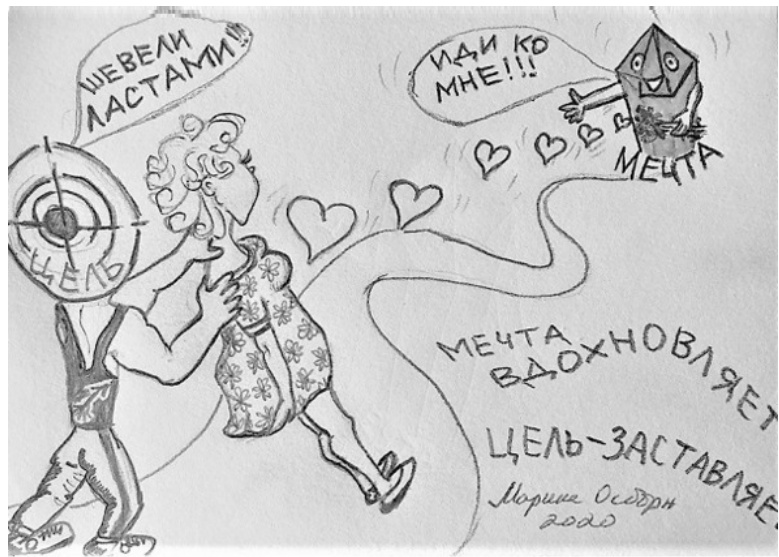 ШЕВЕЛИ
ЛАСТАМИ!!!
ИДИ КО
МНЕ!!!
МЕЧТА
ЦЕЛЬ
МЕЧТА
ВДОХНОВЛЯЕТ
ЦЕЛЬ-ЗАСТАВЛЯЕ
Марина Осборн
2020